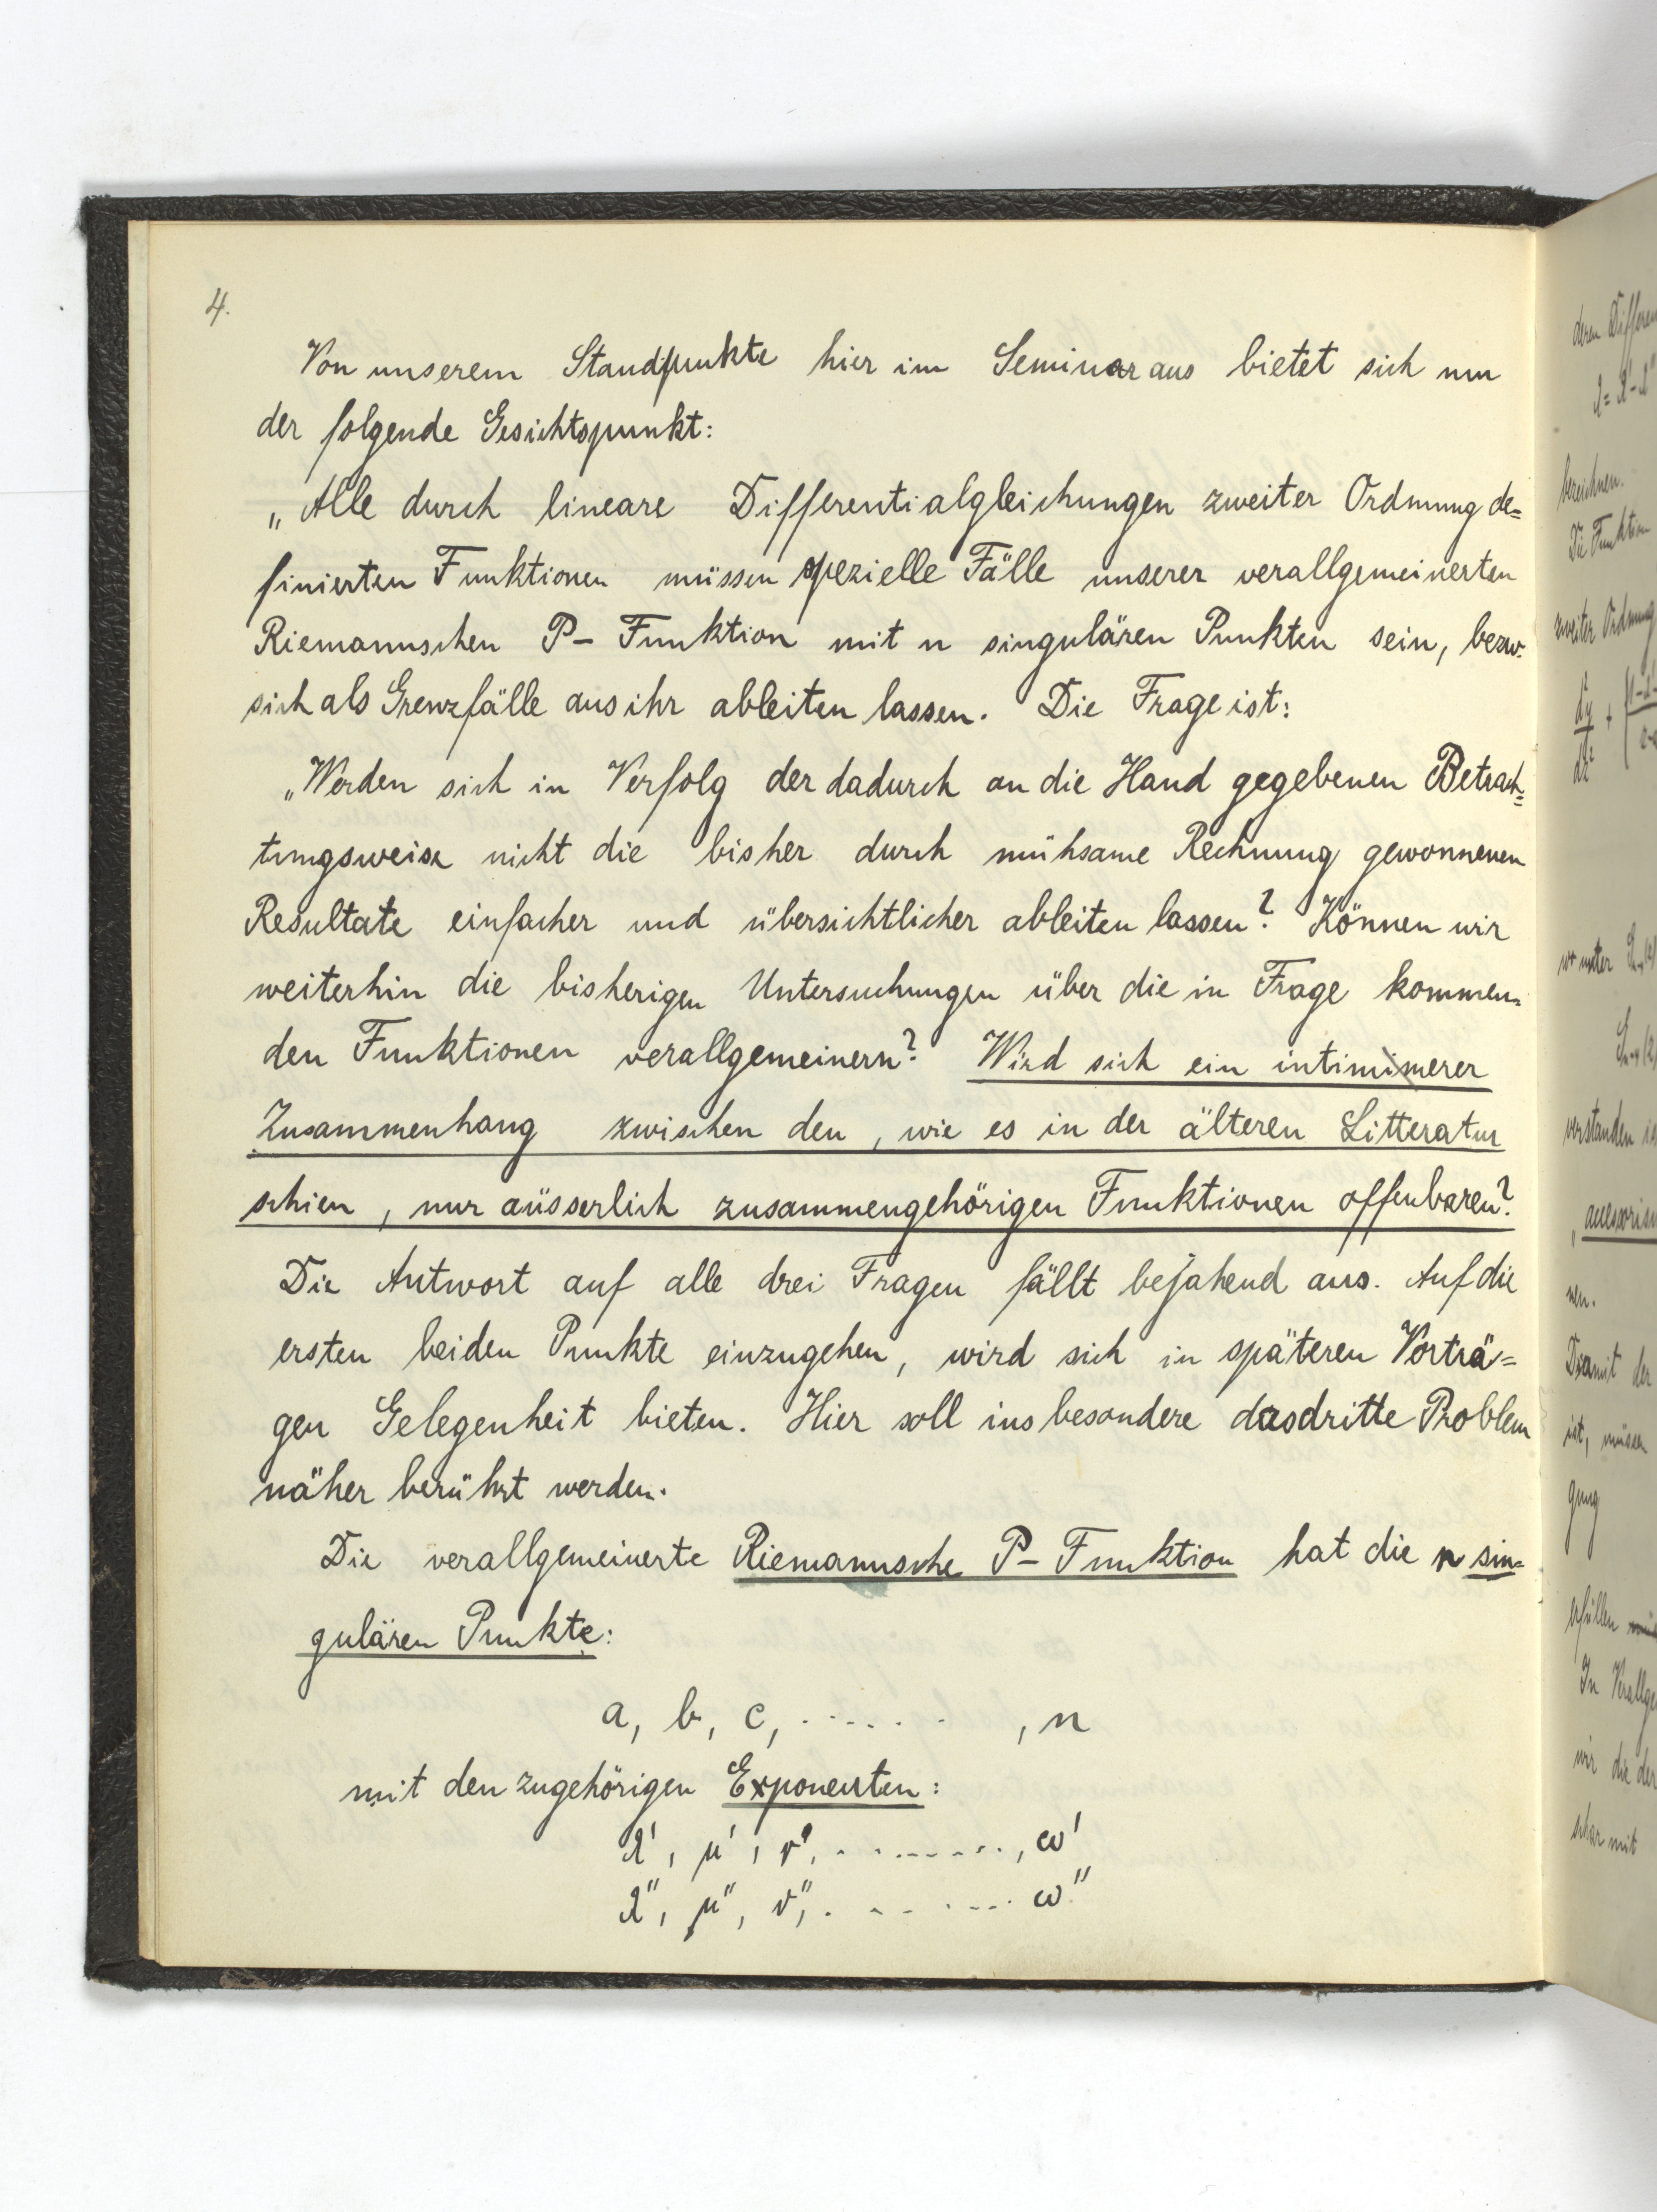 4.
Von unserem Standpunkte hier im Seminar aus bietet sich nun
der folgende Gesichtspunkt:
„Alle durch lineare Differentialgleichungen zweiter Ordnung de=
finierten Funktionen müssen spezielle Fälle unserer verallgemeinerten
Riemannschen P- Funktion mit n singulären Punkten sein, bezw.
sich als Grenzfälle aus ihr ableiten lassen. Die Frage ist:
„Werden sich in Verfolg der dadurch an die Hand gegebenen Betrach=
tungsweise nicht die bisher durch mühsame Rechnung gewonnenen
Resultate einfacher und übersichtlicher ableiten lassen? Können wir
weiterhin die bisherigen Untersuchungen über die in Frage kommen=
den Funktionen verallgemeinern? Wird sich ein intimerer
Zusammenhang zwischen den, wie es in der älteren Litteratur
schien, nur äusserlich zusammengehörigen Funktionen offenbaren?
Die Antwort auf alle drei Fragen fällt bejahend aus. Auf die
ersten beiden Punkte einzugehen, wird sich in späteren Vorträ=
gen Gelegenheit bieten. Hier soll insbesondere das dritte Problem
näher berührt werden.
Die verallgemeinerte Riemannsche P- Funktion hat die n sin=
gulären Punkte:
a, b, c, ....... , n
mit den zugehörigen Exponenten:
λ', μ', ν', ........., ω'
λ'', μ'', ν'', ........ ω''
deren
λ = λ' - λ''
bezeichnen.
Die Funktion
zweiter Ordnung
verstanden
nen.
Damit der
ist, müssen
gung
erfüllen
wir die der
schar mit